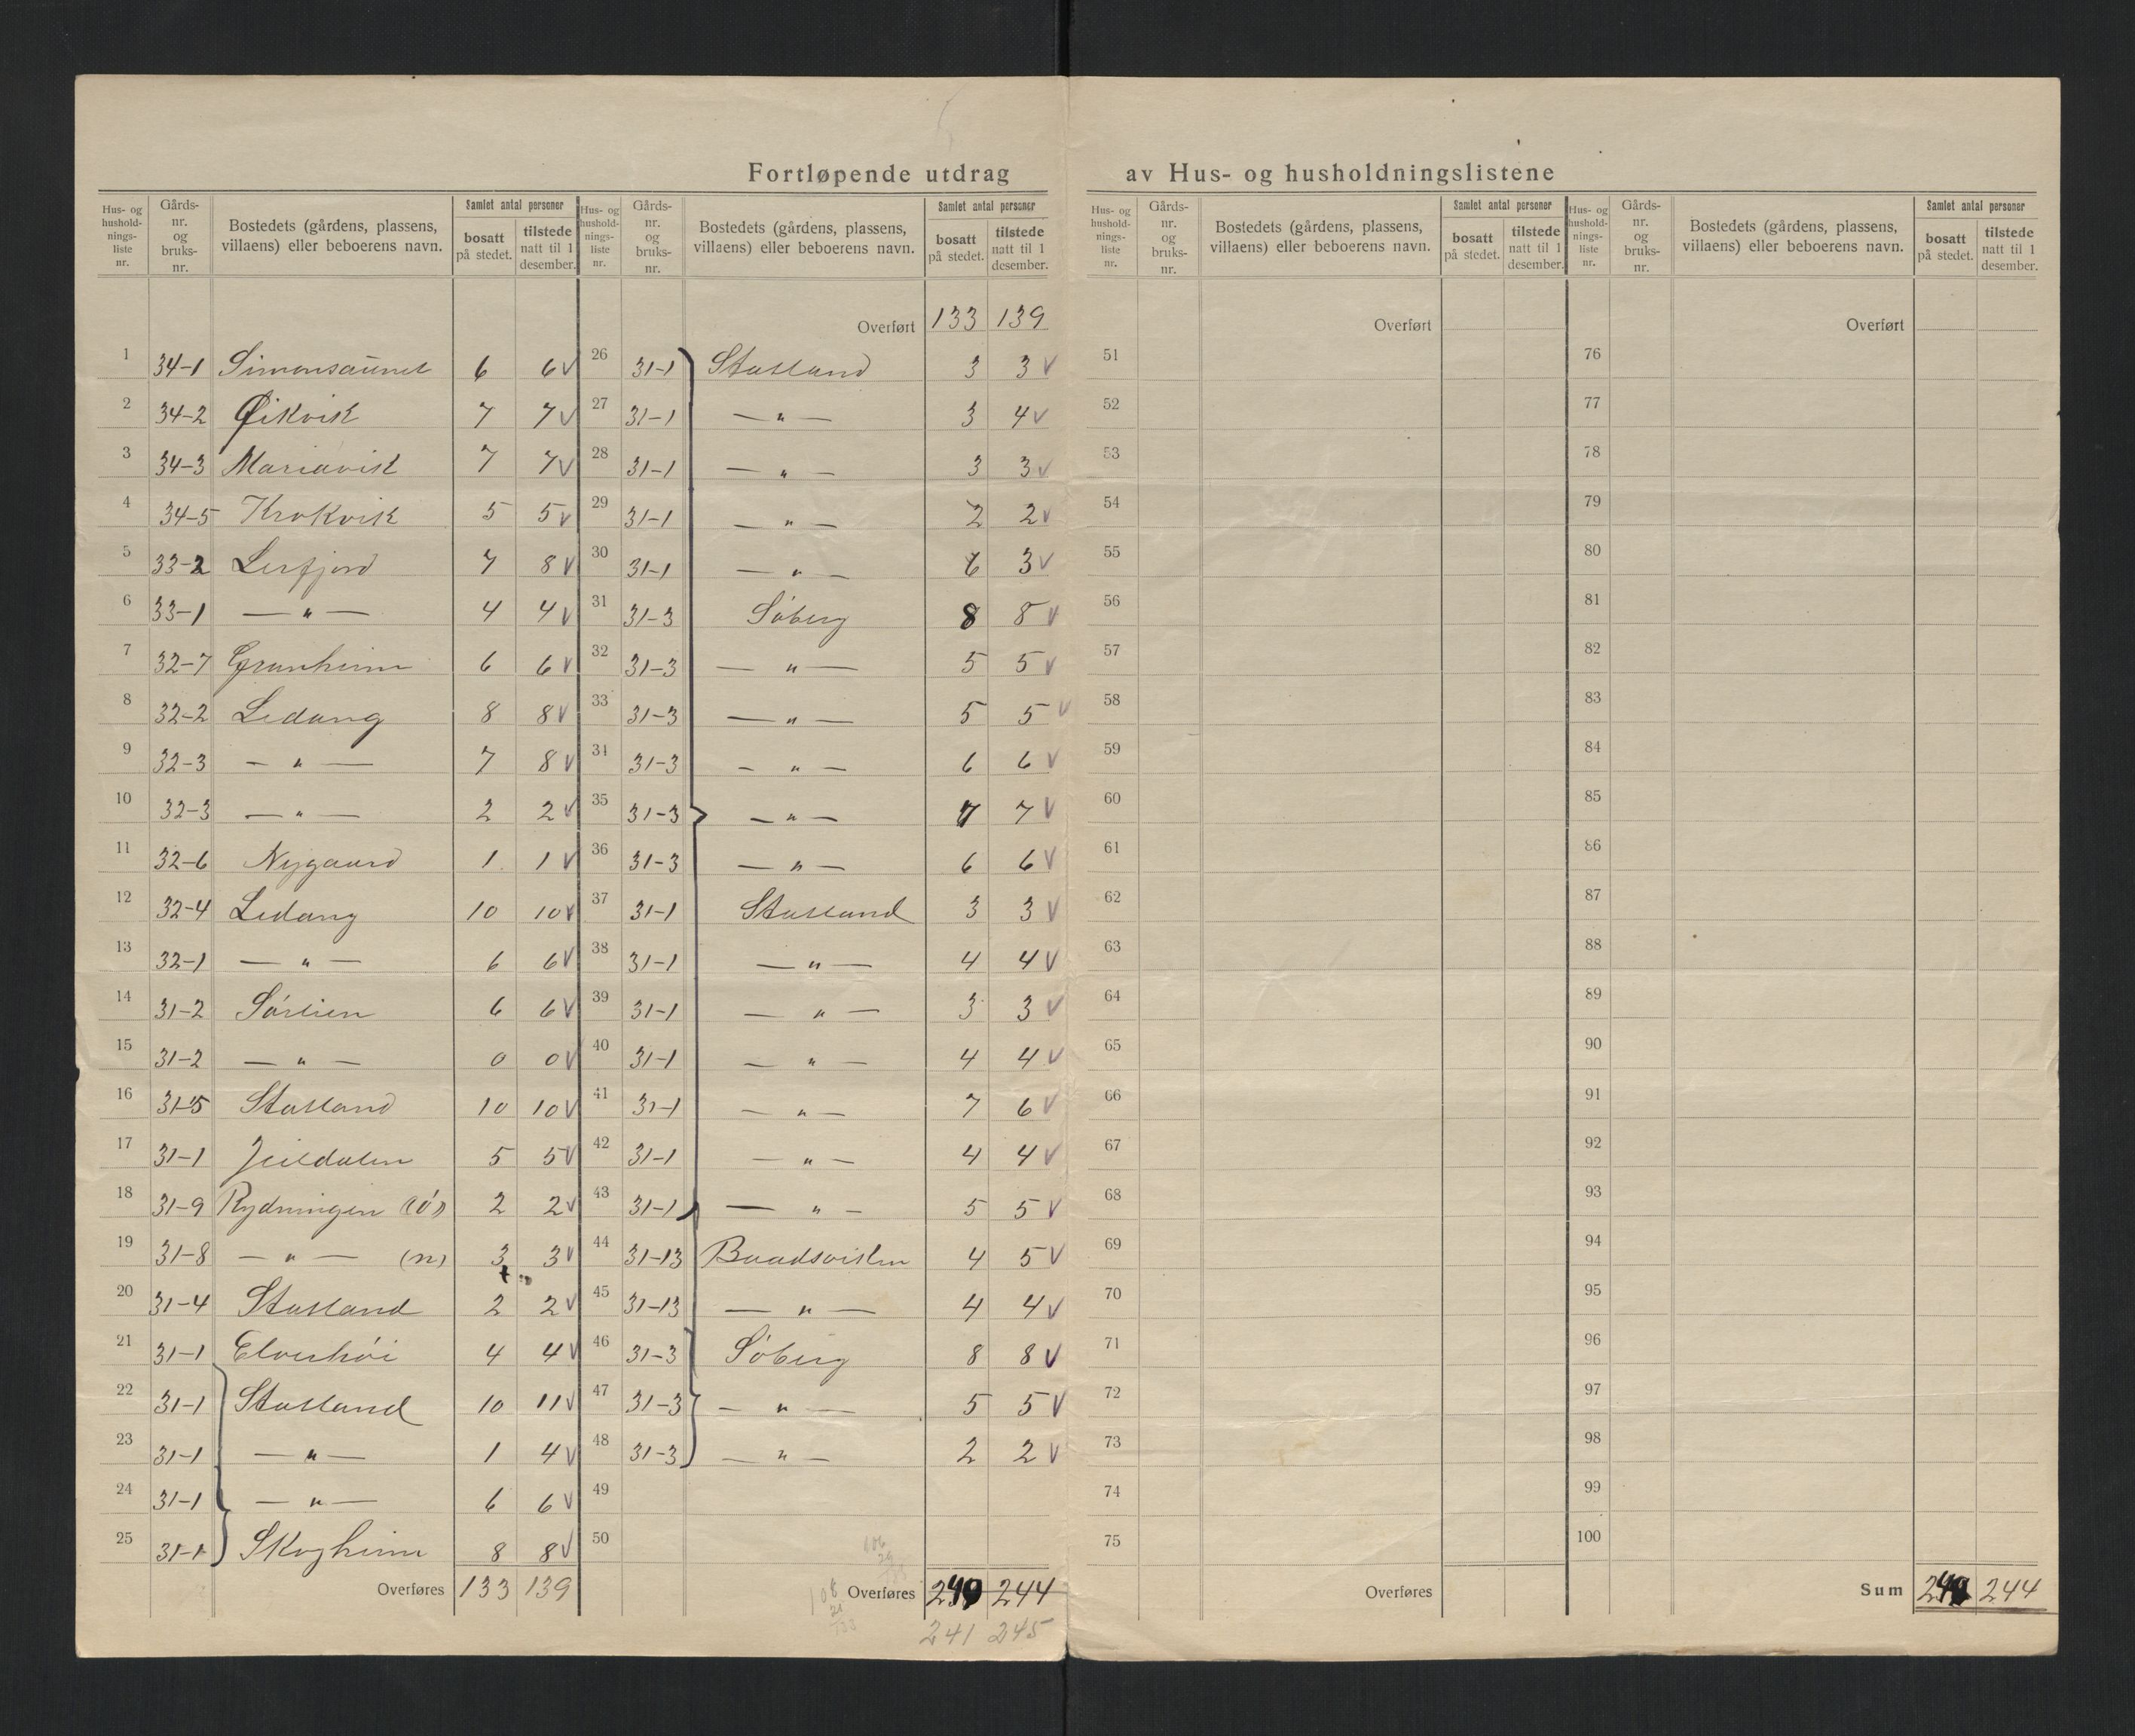 Fortløpende utdrag av Hus- og husholdningslistene
Hus- og hushold-nings-liste nr. Gårds-nr. og bruks-nr. Bostedets (gårdens, plassens, villaens) eller beboerens navn. Samlet antal personer bosatt på stedet. tilstede natt til 1 desember.
1 34-1 Simonsaunet 6 6 V
2 34-2 Øikvik 7 7 V
3 34-3 Mariavik 7 7 V
4 34-5 Krokvik 5 5 V
5 33-2 Lerfjord 7 8 V
6 33-1 — " — 4 4 V
7 32-7 Granheim 6 6 V
8 32-2 Ledang 8 8 V
9 32-3 — " — 7 8 V
10 32-3 — " — 2 2 V
11 32-6 Nygaard 1 1 V
12 32-4 Ledang 10 10 V
13 32-1 — " — 6 6 V
14 31-2 Sørlien 6 6 V
15 31-2 — " — 0 0 V
16 31-5 Statland 10 10 V
17 31-1 Jildalen 5 5 V
18 31-9 Rydningen (ö) 2 2 V
19 31-8 — " — (n) 3 3 V
20 31-4 Statland 2 2 V
21 31-1 Elverhöi 4 4 V
22 31-1 Statland 10 11 V
23 31-1 — " — 1 4 V
24 31-1 — " — 6 6 V
25 31-1 Skogheim 8 8 V
Overføres 133 139
Hus- og hushold-nings-liste nr. Gårds-nr. og bruks-nr. Bostedets (gårdens, plassens, villaens) eller beboerens navn. Samlet antal personer bosatt på stedet. tilstede natt til 1 desember.
Overført 133 139
26 31-1 Statland 3 3 V
27 31-1 — " — 3 4 V
28 31-1 — " — 3 3 V
29 31-1 — " — 2 2 V
30 31-1 — " — 3 V
31 31-3 Söberg 8 8 V
32 31-3 — " — 5 5 V
33 31-3 — " — 5 5 V
34 31-3 — " — 6 6 V
35 31-3 — " — 7 7 V
36 31-3 — " — 6 6 V
37 31-1 Statland 3 3 V
38 31-1 — " — 4 4 V
39 31-1 — " — 3 3 V
40 31-1 — " — 4 4 V
41 31-1 — " — 7 6 V
42 31-1 — " — 4 4 V
43 31-1 — " — 5 5 V
44 31-13 Baadsviken 4 5 V
45 31-13 — " — 4 4 V
46 31-3 Söberg 8 8 V
47 31-3 — " — 5 5 V
48 31-3 — " — 2 2 V
49
50
Overføres 244
241 245
Hus- og hushold-nings-liste nr. Gårds-nr. og bruks-nr. Bostedets (gårdens, plassens, villaens) eller beboerens navn. Samlet antal personer bosatt på stedet. tilstede natt til 1 desember.
Overført
51
52
53
54
55
56
57
58
59
60
61
62
63
64
65
66
67
68
69
70
71
72
73
74
75
Overføres
Hus- og hushold-nings-liste nr. Gårds-nr. og bruks-nr. Bostedets (gårdens, plassens, villaens) eller beboerens navn. Samlet antal personer bosatt på stedet. tilstede natt til 1 desember.
Overført
76
77
78
79
80
81
82
83
84
85
86
87
88
89
90
91
92
93
94
95
96
97
98
99
100
Sum 244